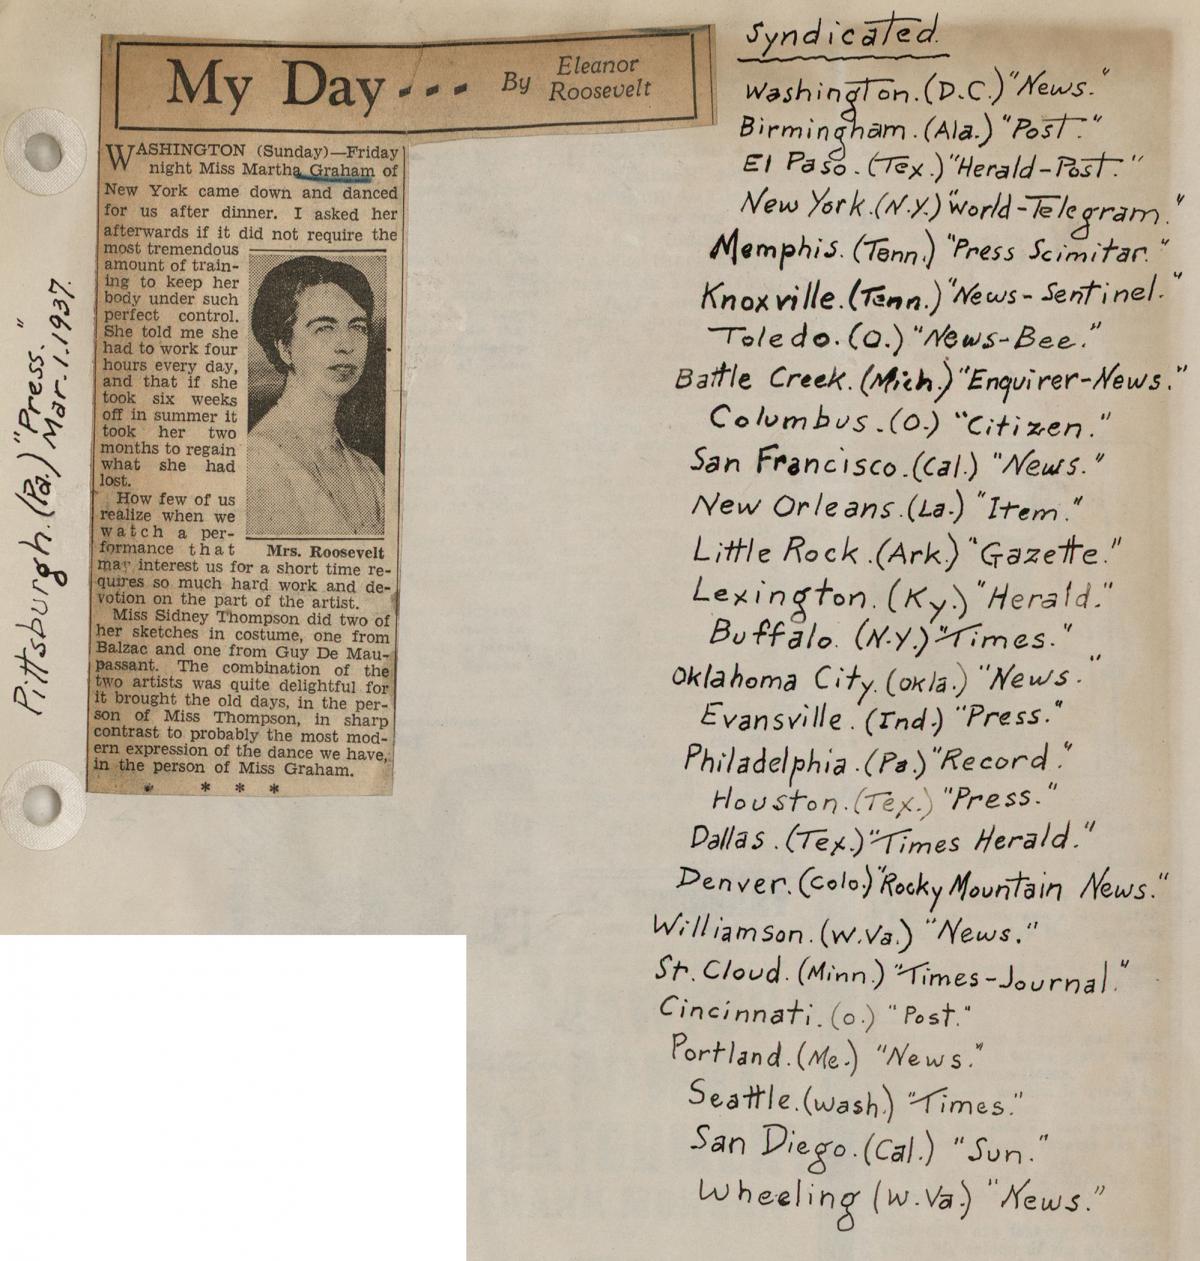 My Day... By Eleanor Roosevelt
WASHINGTON (Sunday)—Friday
night Miss Martha Graham of
New York came down and danced
for us after dinner. I asked her
afterwards if it did not require the
most tremendous
amount of train-
ing to keep her
body under such
perfect control.
She told me she
had to work four
hours every day,
and that if she
took six weeks
off in summer it
took her two
months to regain
what she had
lost.
How few of us
realize when we
watch a per-
formance that
may interest us for a short time re-
quires so much hard work and de-
votion on the part of the artist.
Mrs. Roosevelt
Miss Sidney Thompson did two of
her sketches in costume, one from
Balzac and one from Guy De Mau-
passant. The combination of the
two artists was quite delightful for
it brought the old days, in the per-
son of Miss Thompson, in sharp
contrast to probably the most mod-
ern expression of the dance we have,
in the person of Miss Graham.
* * *
Pittsburgh. (Pa.) "Press."
Mar. 1. 1937.
Syndicated.
Washington. (D.C.) "News."
Birmingham. (Ala.) "Post."
El Paso. (Tex.) "Herald-Post."
New York. (N.Y.) "World-Telegram."
Memphis. (Tenn.) "Press Scimitar."
Knoxville. (Tenn.) "News-Sentinel."
Toledo. (O.) "News-Bee."
Battle Creek. (Mich.) "Enquirer-News."
Columbus. (O.) "Citizen."
San Francisco. (Cal.) "News."
New Orleans. (La.) "Item."
Little Rock. (Ark.) "Gazette."
Lexington. (Ky.) "Herald."
Buffalo. (N.Y.) "Times."
Oklahoma City. (Okla.) "News."
Evansville. (Ind.) "Press."
Philadelphia. (Pa.) "Record."
Houston. (Tex.) "Press."
Dallas. (Tex.) "Times Herald."
Denver. (Colo.) "Rocky Mountain News."
Williamson. (W.Va.) "News."
St. Cloud. (Minn.) "Times-Journal."
Cincinnati. (O.) "Post."
Portland. (Me.) "News."
Seattle. (Wash.) "Times."
San Diego. (Cal.) "Sun."
Wheeling (W.Va.) "News."